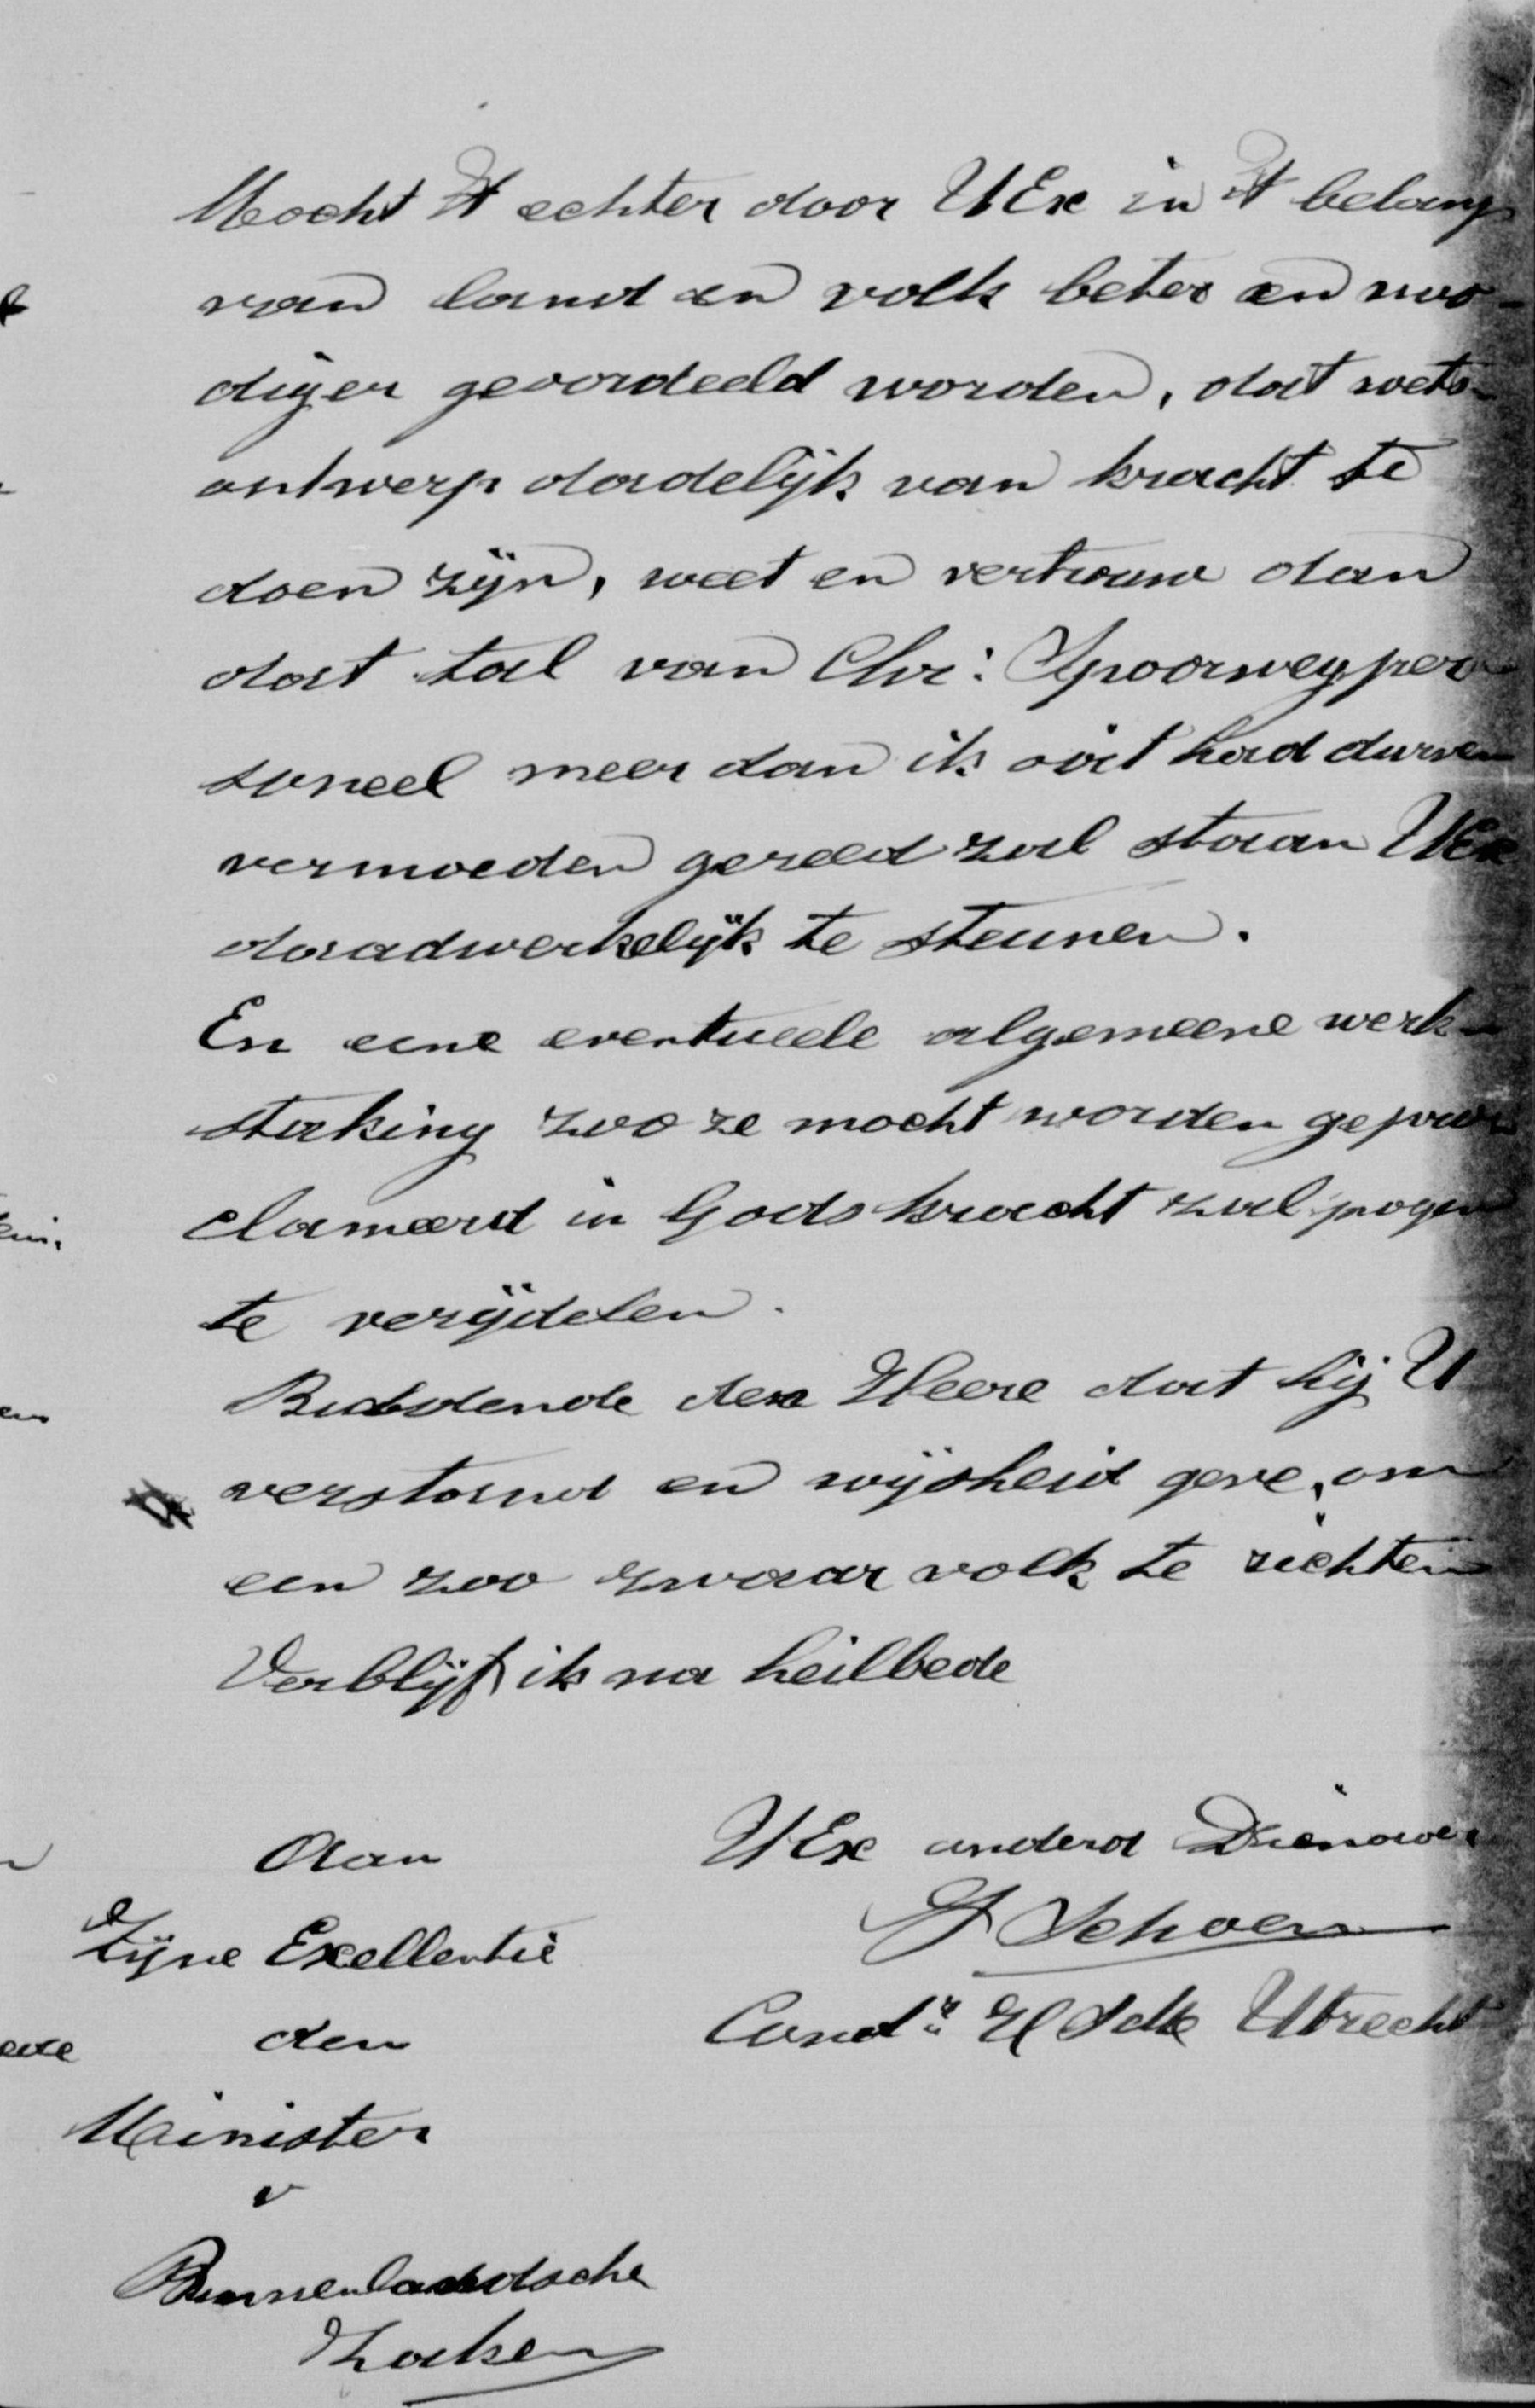 Mocht 't echter door UEx in 't belang
van land en volk beter en noo-
diger geoordeeld worden, dat wets-
ontwerp dadelijk van kracht te
doen zijn, weet en vertrouw dan
dat tal van Chr: Spoorwegper
soneel meer dan ik ooit had durven
vermoeden gereed zal staan UEx
daadwerkelijk te steunen.
En eene eventueele algemeene werk-
staking zoo ze mocht worden gepro
clameerd in Gods kracht zal pogen
te verijdelen.
Biddende den Heere dat hij U
verstand en wijsheid geve, om
een zoo zwaar volk te richten
Verblijf ik na heilbede
UEx onderd Dienaar
Schoen
Cond.r H Utrecht
Aan
Zijne Exellentie
den
Minister
v
Binnenlandsche
Zaken